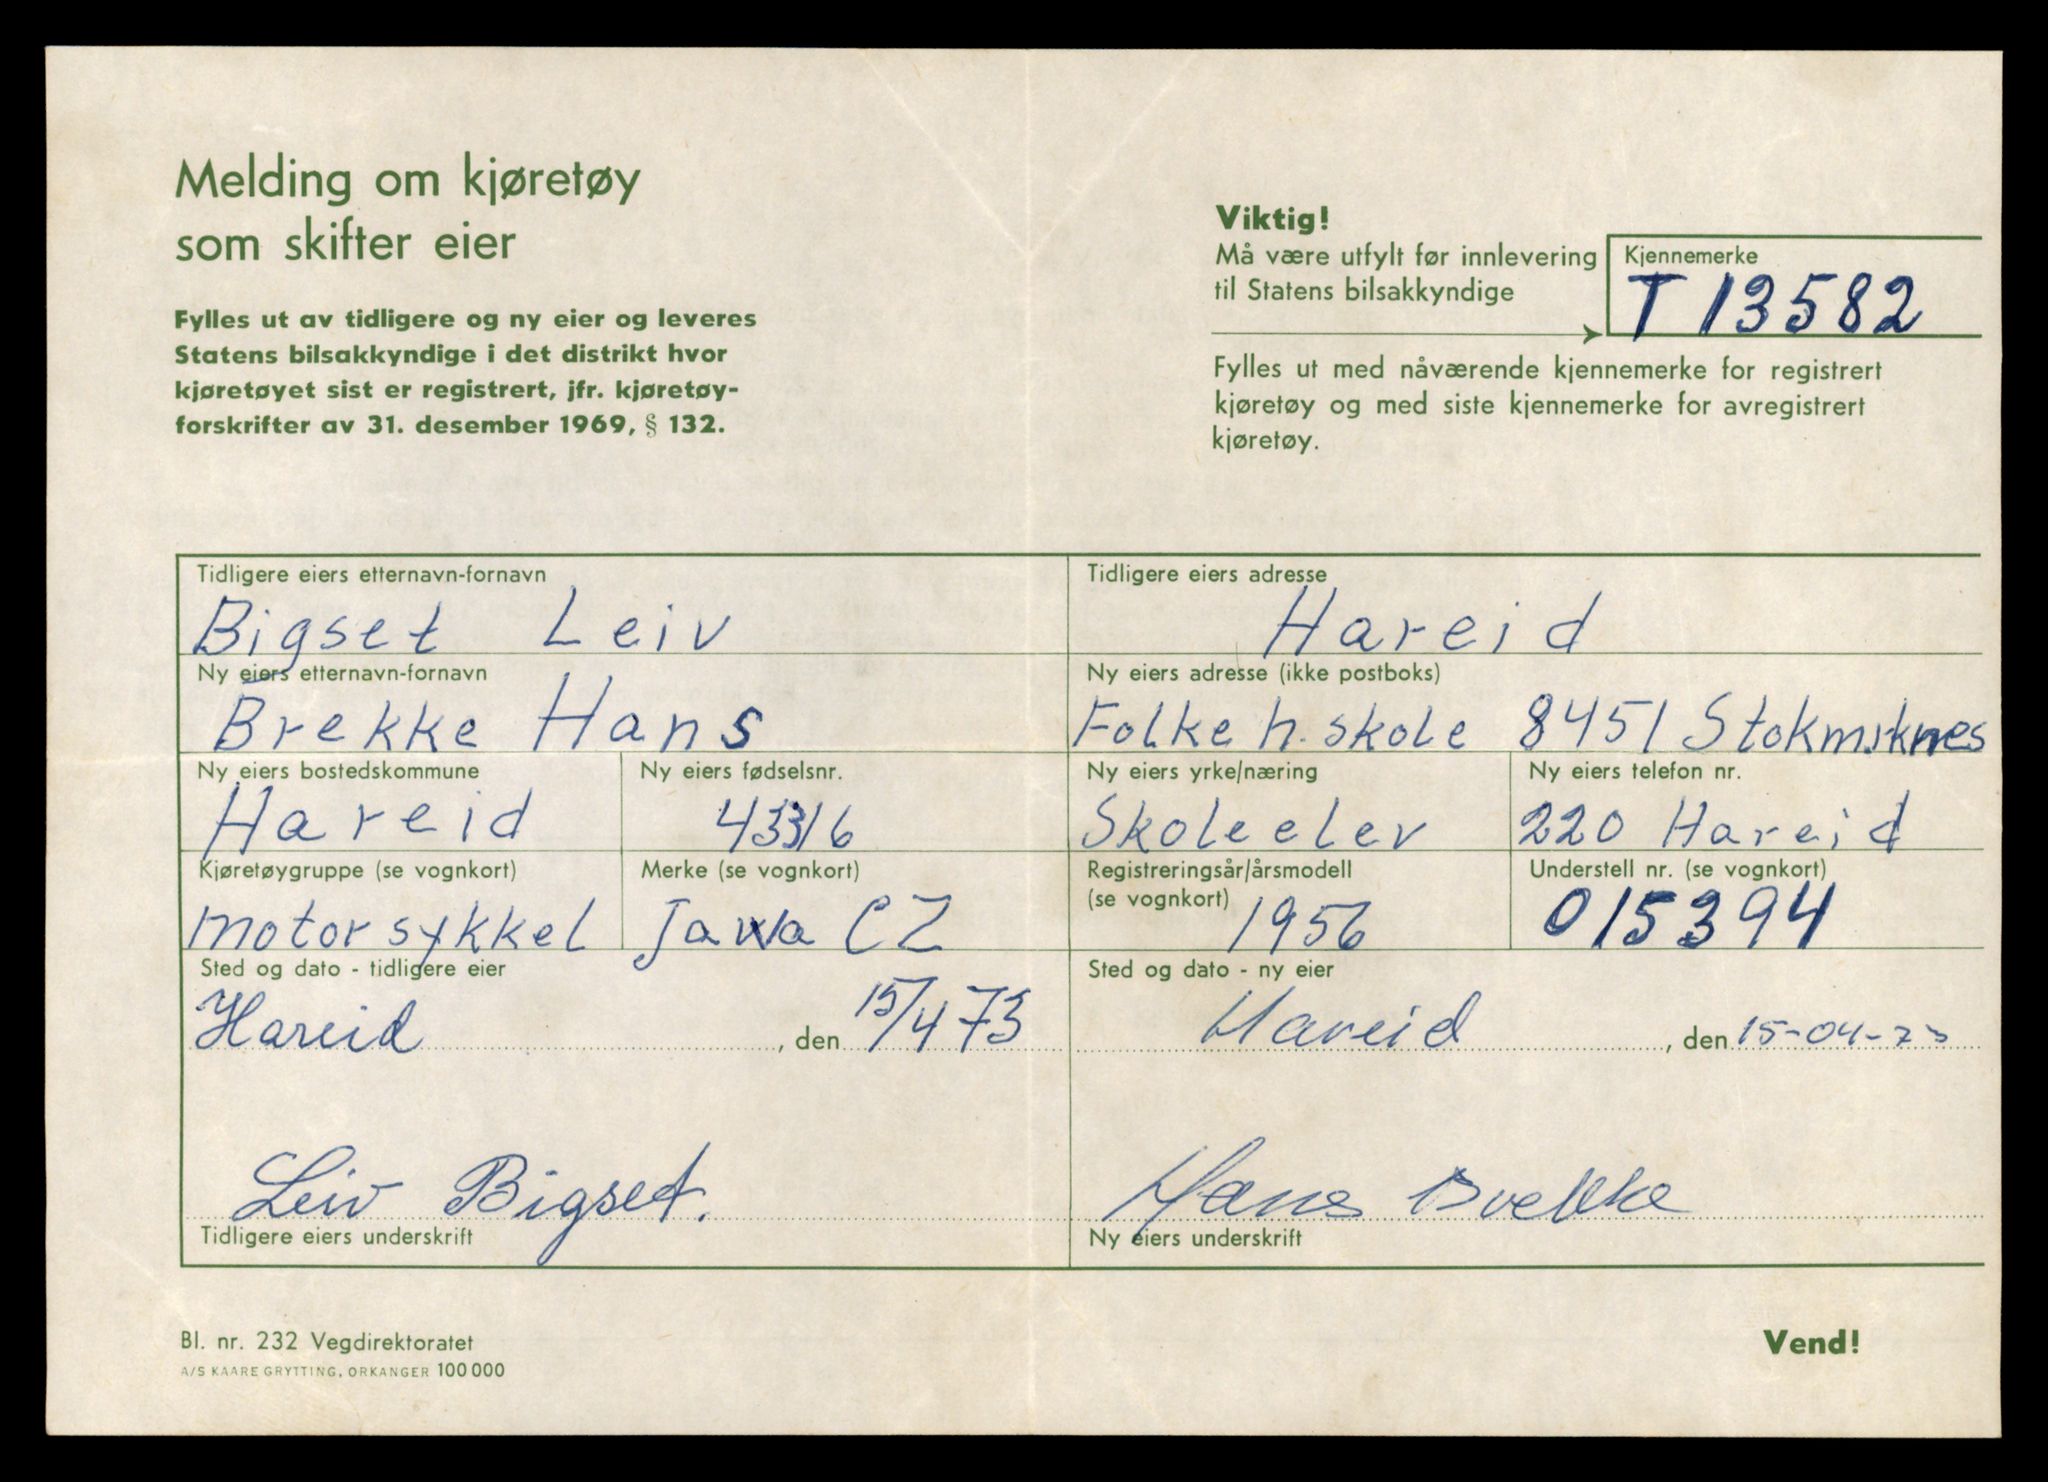 Melding om kjøretøy
som skifter eier
Fylles ut av tidligere og ny eier og leveres
Statens bilsakkyndige i det distrikt hvor
kjøretøyet sist er registrert, jfr. kjøretøy-
forskrifter av 31. desember 1969, § 132.
Viktig!
Må være utfylt før innlevering
til Statens bilsakkyndige
Kjennemerke
T 13582
Fylles ut med nåværende kjennemerke for registrert
kjøretøy og med siste kjennemerke for avregistrert
kjøretøy.
Tidligere eiers etternavn-fornavn
Bigset Leiv
Tidligere eiers adresse
Hareid
Ny eiers etternavn-fornavn
Brekke Hans
Ny eiers adresse (ikke postboks)
Folke h. skole 8451 Stokmsknes
Ny eiers bostedskommune
Hareid
Ny eiers fødselsnr.
43316
Ny eiers yrke/næring
Skoleelev
Ny eiers telefon nr.
220 Hareid
Kjøretøygruppe (se vognkort)
motorsykkel
Merke (se vognkort)
Jawa CZ
Registreringsår/årsmodell
(se vognkort) 1956
Understell nr. (se vognkort)
015394
Sted og dato - tidligere eier
Hareid, den 15/4 73
Sted og dato - ny eier
Hareid, den 15-04-73
Leiv Bigset.
Tidligere eiers underskrift
Hans Brekke
Ny eiers underskrift
Bl. nr. 232 Vegdirektoratet
A/S KAARE GRYTTING, ORKANGER 100 000
Vend!